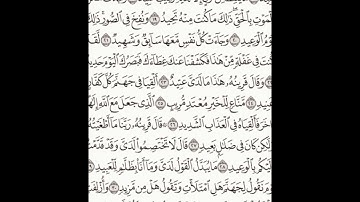 ٱلْمَوْتِ بِٱلْحَقِّ ذَٰلِكَ مَا كُنتَ مِنْهُ تَحِيدُ ١٩ وَنُفِخَ فِى ٱلصُّورِ ذَ
يَوْمُ ٱلْوَعِيدِ ٢٠ وَجَآءَتْ كُلُّ نَفْسٍ مَّعَهَا سَآئِقٌ وَشَهِيدٌ ٢١ لَّقَدْ
تَ فِى غَفْلَةٍ مِّنْ هَٰذَا فَكَشَفْنَا عَنكَ غِطَآءَكَ فَبَصَرُكَ ٱلْيَوْمَ حَدِيدٌ
وَقَالَ قَرِينُهُۥ هَٰذَا مَا لَدَىَّ عَتِيدٌ ٢٣ أَلْقِيَا فِى جَهَنَّمَ كُلَّ كَفَّارٍ
عَنِيدٍ ٢٤ مَّنَّاعٍ لِّلْخَيْرِ مُعْتَدٍ مُّرِيبٍ ٢٥ ٱلَّذِى جَعَلَ مَعَ ٱللَّهِ إِلَٰهًا
ءَاخَرَ فَأَلْقِيَاهُ فِى ٱلْعَذَابِ ٱلشَّدِيدِ ٢٦ قَالَ قَرِينُهُۥ رَبَّنَا مَآ أَطْغَيْتُهُۥ
وَلَٰكِن كَانَ فِى ضَلَٰلٍۭ بَعِيدٍ ٢٧ قَالَ لَا تَخْتَصِمُوا۟ لَدَىَّ وَقَدْ قَدَّمْتُ
إِلَيْكُم بِٱلْوَعِيدِ ٢٨ مَا يُبَدَّلُ ٱلْقَوْلُ لَدَىَّ وَمَآ أَنَا۠ بِظَلَّٰمٍ لِّلْعَبِيدِ
يَوْمَ نَقُولُ لِجَهَنَّمَ هَلِ ٱمْتَلَأْتِ وَتَقُولُ هَلْ مِن مَّزِيدٍ ٣٠ وَأُزْلِفَتِ